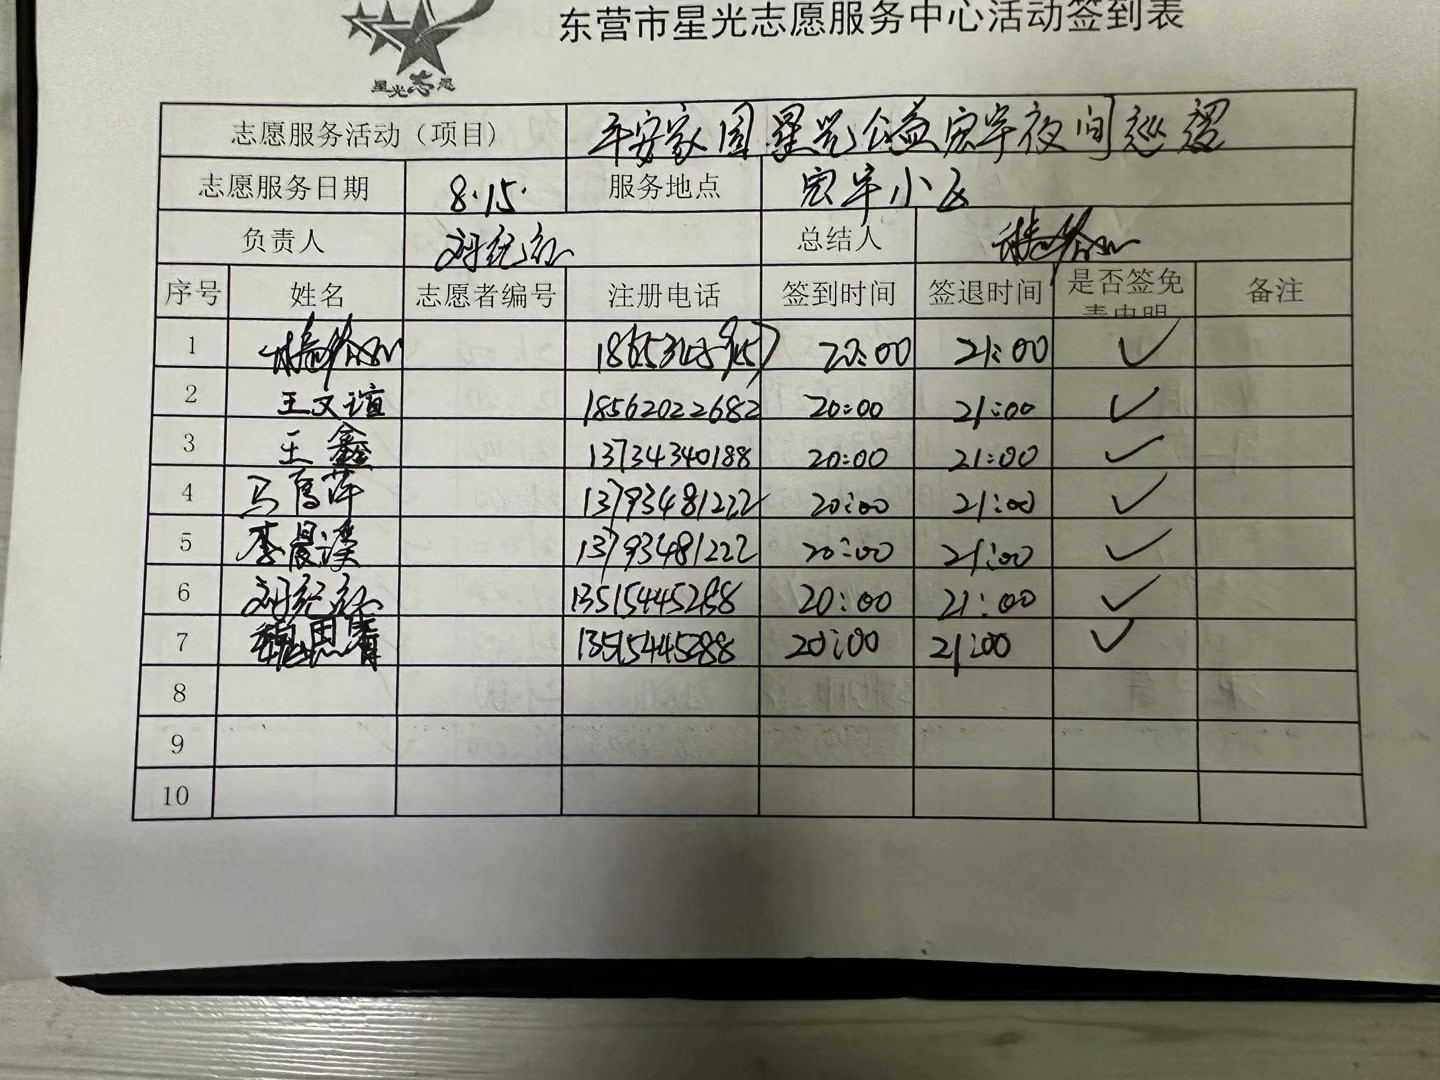 东营市星光志愿服务中心活动签到表
星光志愿
志愿服务活动（项目） 平安家园星光公益宏宇夜间巡逻
志愿服务日期 8.15. 服务地点 宏宇小区
负责人 总结人
序号 姓名 志愿者编号 注册电话 签到时间 签退时间 是否签免责申明 备注
1 20:00 21:00 ✓
2 王文谊 18562022682 20:00 21:00 ✓
3 王鑫 13734340188 20:00 21:00 ✓
4 马 萍 13793481222 20:00 21:00 ✓
5 李晨溪 13793481222 20:00 21:00 ✓
6 13515445288 20:00 21:00 ✓
7 魏思睿 13515445288 20:00 21:00 ✓
8
9
10